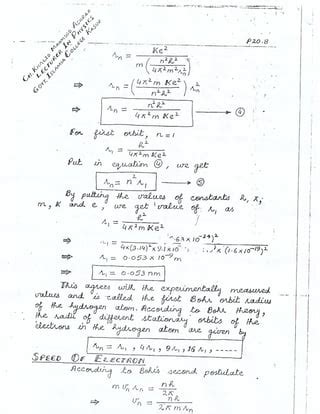 P20.8
CH. KHALID MAHMOOD
LECTURER IN PHYSICS
GOVT. ISLAMIA COLLEGE KASUR
rₙ = Ke² / m(n²h² / 4π²m²rₙ²)
⇒ rₙ = (4π²m Ke² / n²h²) rₙ²
⇒ rₙ = n²h² / 4π²m Ke² → ④
For first orbit, n = 1
r₁ = h² / 4π²m Ke²
Put in equation ④, we get
rₙ = n² r₁ → ⑤
By putting the values of constants h, π,
m, K and e, we get value of r₁ as
r₁ = h² / 4π²m Ke²
⇒ r₁ = 6.63 x 10⁻³⁴)² / 4x(3.14)² x 9.1x10 x (1.6x10⁻¹⁹)²
⇒ r₁ = 0.053 x 10⁻⁹ m
⇒ r₁ = 0.053 nm
This agrees with the experimentally measured
values and is called the first Bohr orbit radius
of the hydrogen atom. According to Bohr theory,
the radii of different stationary orbits of the
electrons in the hydrogen atom are given by
rₙ = r₁, 4r₁, 9r₁, 16r₁, -----
SPEED OF ELECTRON
According to Bohr's second postulate
m vₙ rₙ = nh / 2π
⇒ vₙ = nh / 2π m rₙ